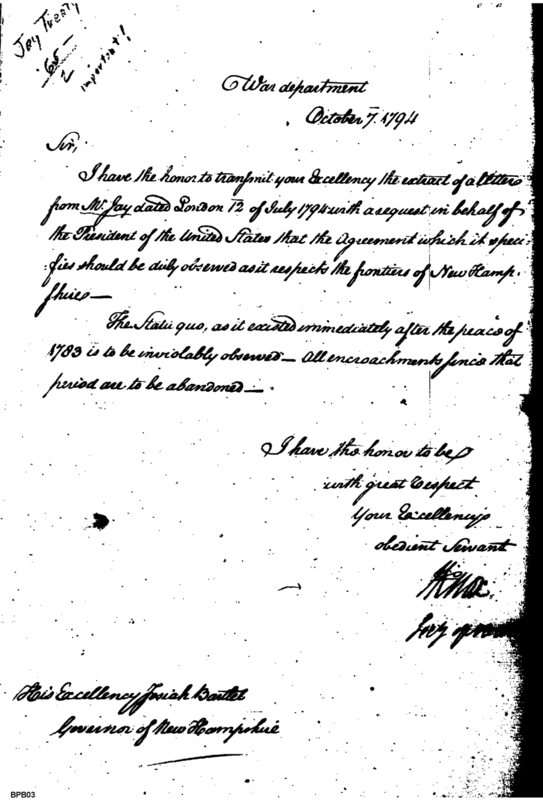 Jay Treaty
65-
2
important!
War department
October 7. 1794
Sir,
I have the honor to transmit your Excellency the extract of a letter
from Mr. Jay dated London 12 of July 1794 with a request in behalf of
the President of the United States that the Agreement which it speci-
fies should be duly observed as it respects the frontiers of New Hamp-
shire—
The Statu quo, as it existed immediately after the peace of
1783 is to be inviolably observed— All encroachments since that
period are to be abandoned—
I have the honor to be
with great respect
Your Excellencys
obedient Servant
HKnox
Secy of war
His Excellency Josiah Bartlet
Governor of New Hampshire
BPB03